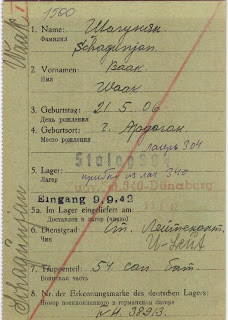 1500
Waak
Schaginjan
1. Name: Шагинян
Фамилия Schaginjan.
2. Vornamen: Ваак.
Имя Waak
3. Geburtstag: 21.5.06
День рождения
4. Geburtsort: г. Ардоган.
Место рождения лагерь 304
Stalag
5. Lager: прибыл из лаг 340
Лагерь 340-Dünaburg
Eingang 9.9.42
5a. Im Lager eingeliefert am:
Доставлен в лагерь (число)
6. Dienstgrad: Ст. Лейтенант.
Чин U-Leut
7. Truppenteil: 54 сап. бат.
Воинская часть
8. Nr. der Erkennungsmarke des deutschen Lagers:
Номер военнопленного в германском лагере
N. 38913.